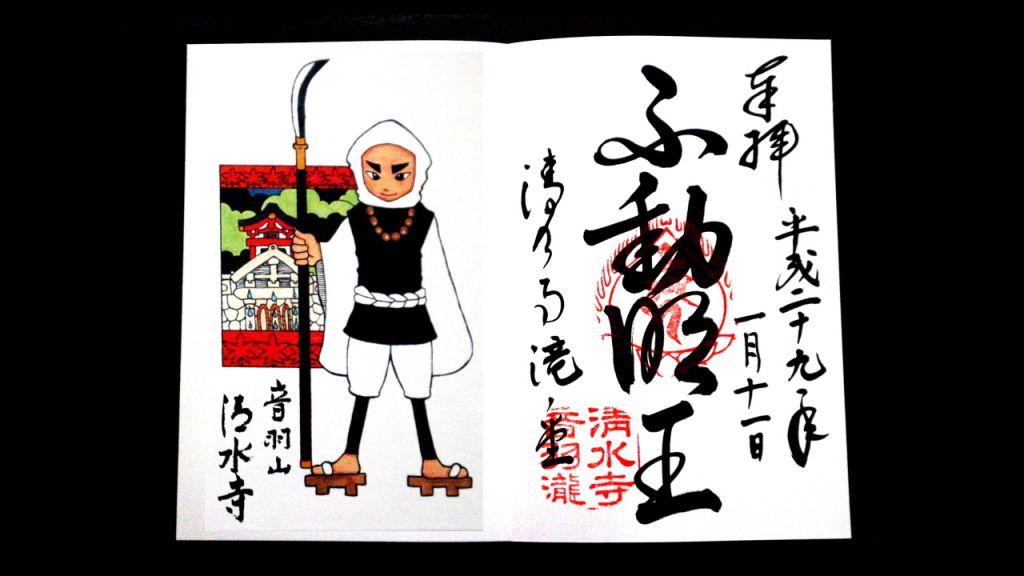 奉拝
平成二十九年
一月十一日
不動明王
清水寺
音羽瀧
音羽山
清水寺